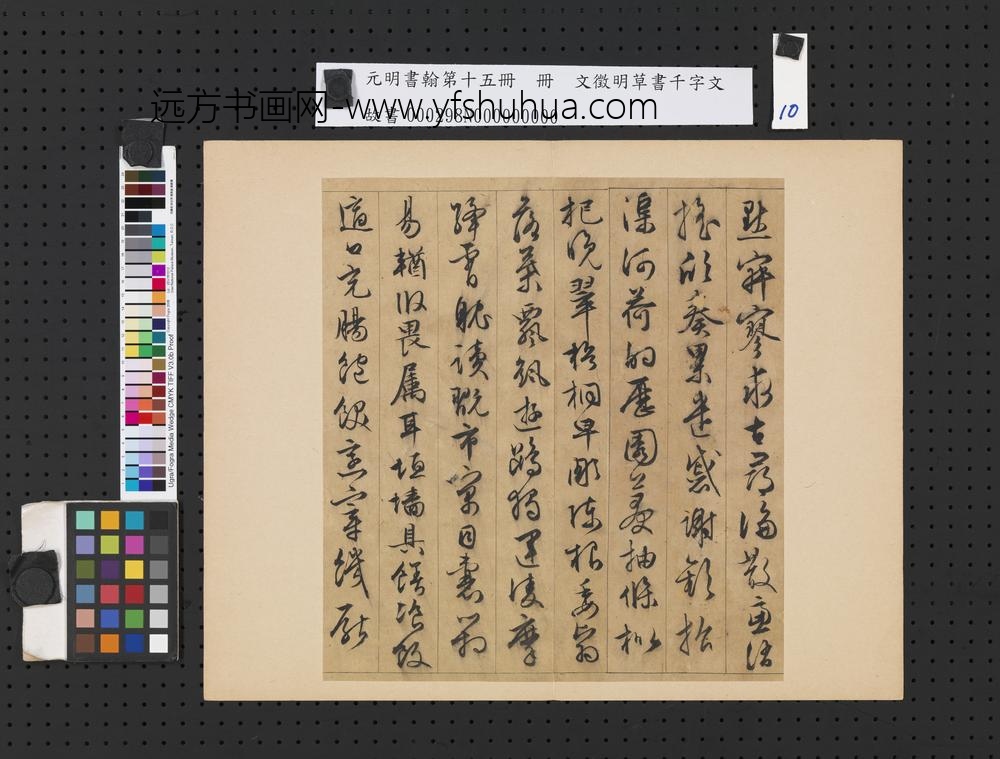 元明書翰第十五冊　冊　文徵明草書千字文
远方书画网-www.yfshuhua.com
故書 000298N000000000
10
默寂寥求古尋論散慮逍
搖欣奏累遣慼謝歡招
渠河荷的歷園莽抽條枇
杷晚翠梧桐早彫陳根委翳
落葉飄颻遊鵾獨運凌摩
絳霄耽讀翫市寓目囊箱
易輶攸畏屬耳垣墻具膳飡飯
適口充腸飽飫烹宰饑厭
Ugra/Fogra Media Wedge CMYK TIFF V3.0b Proof